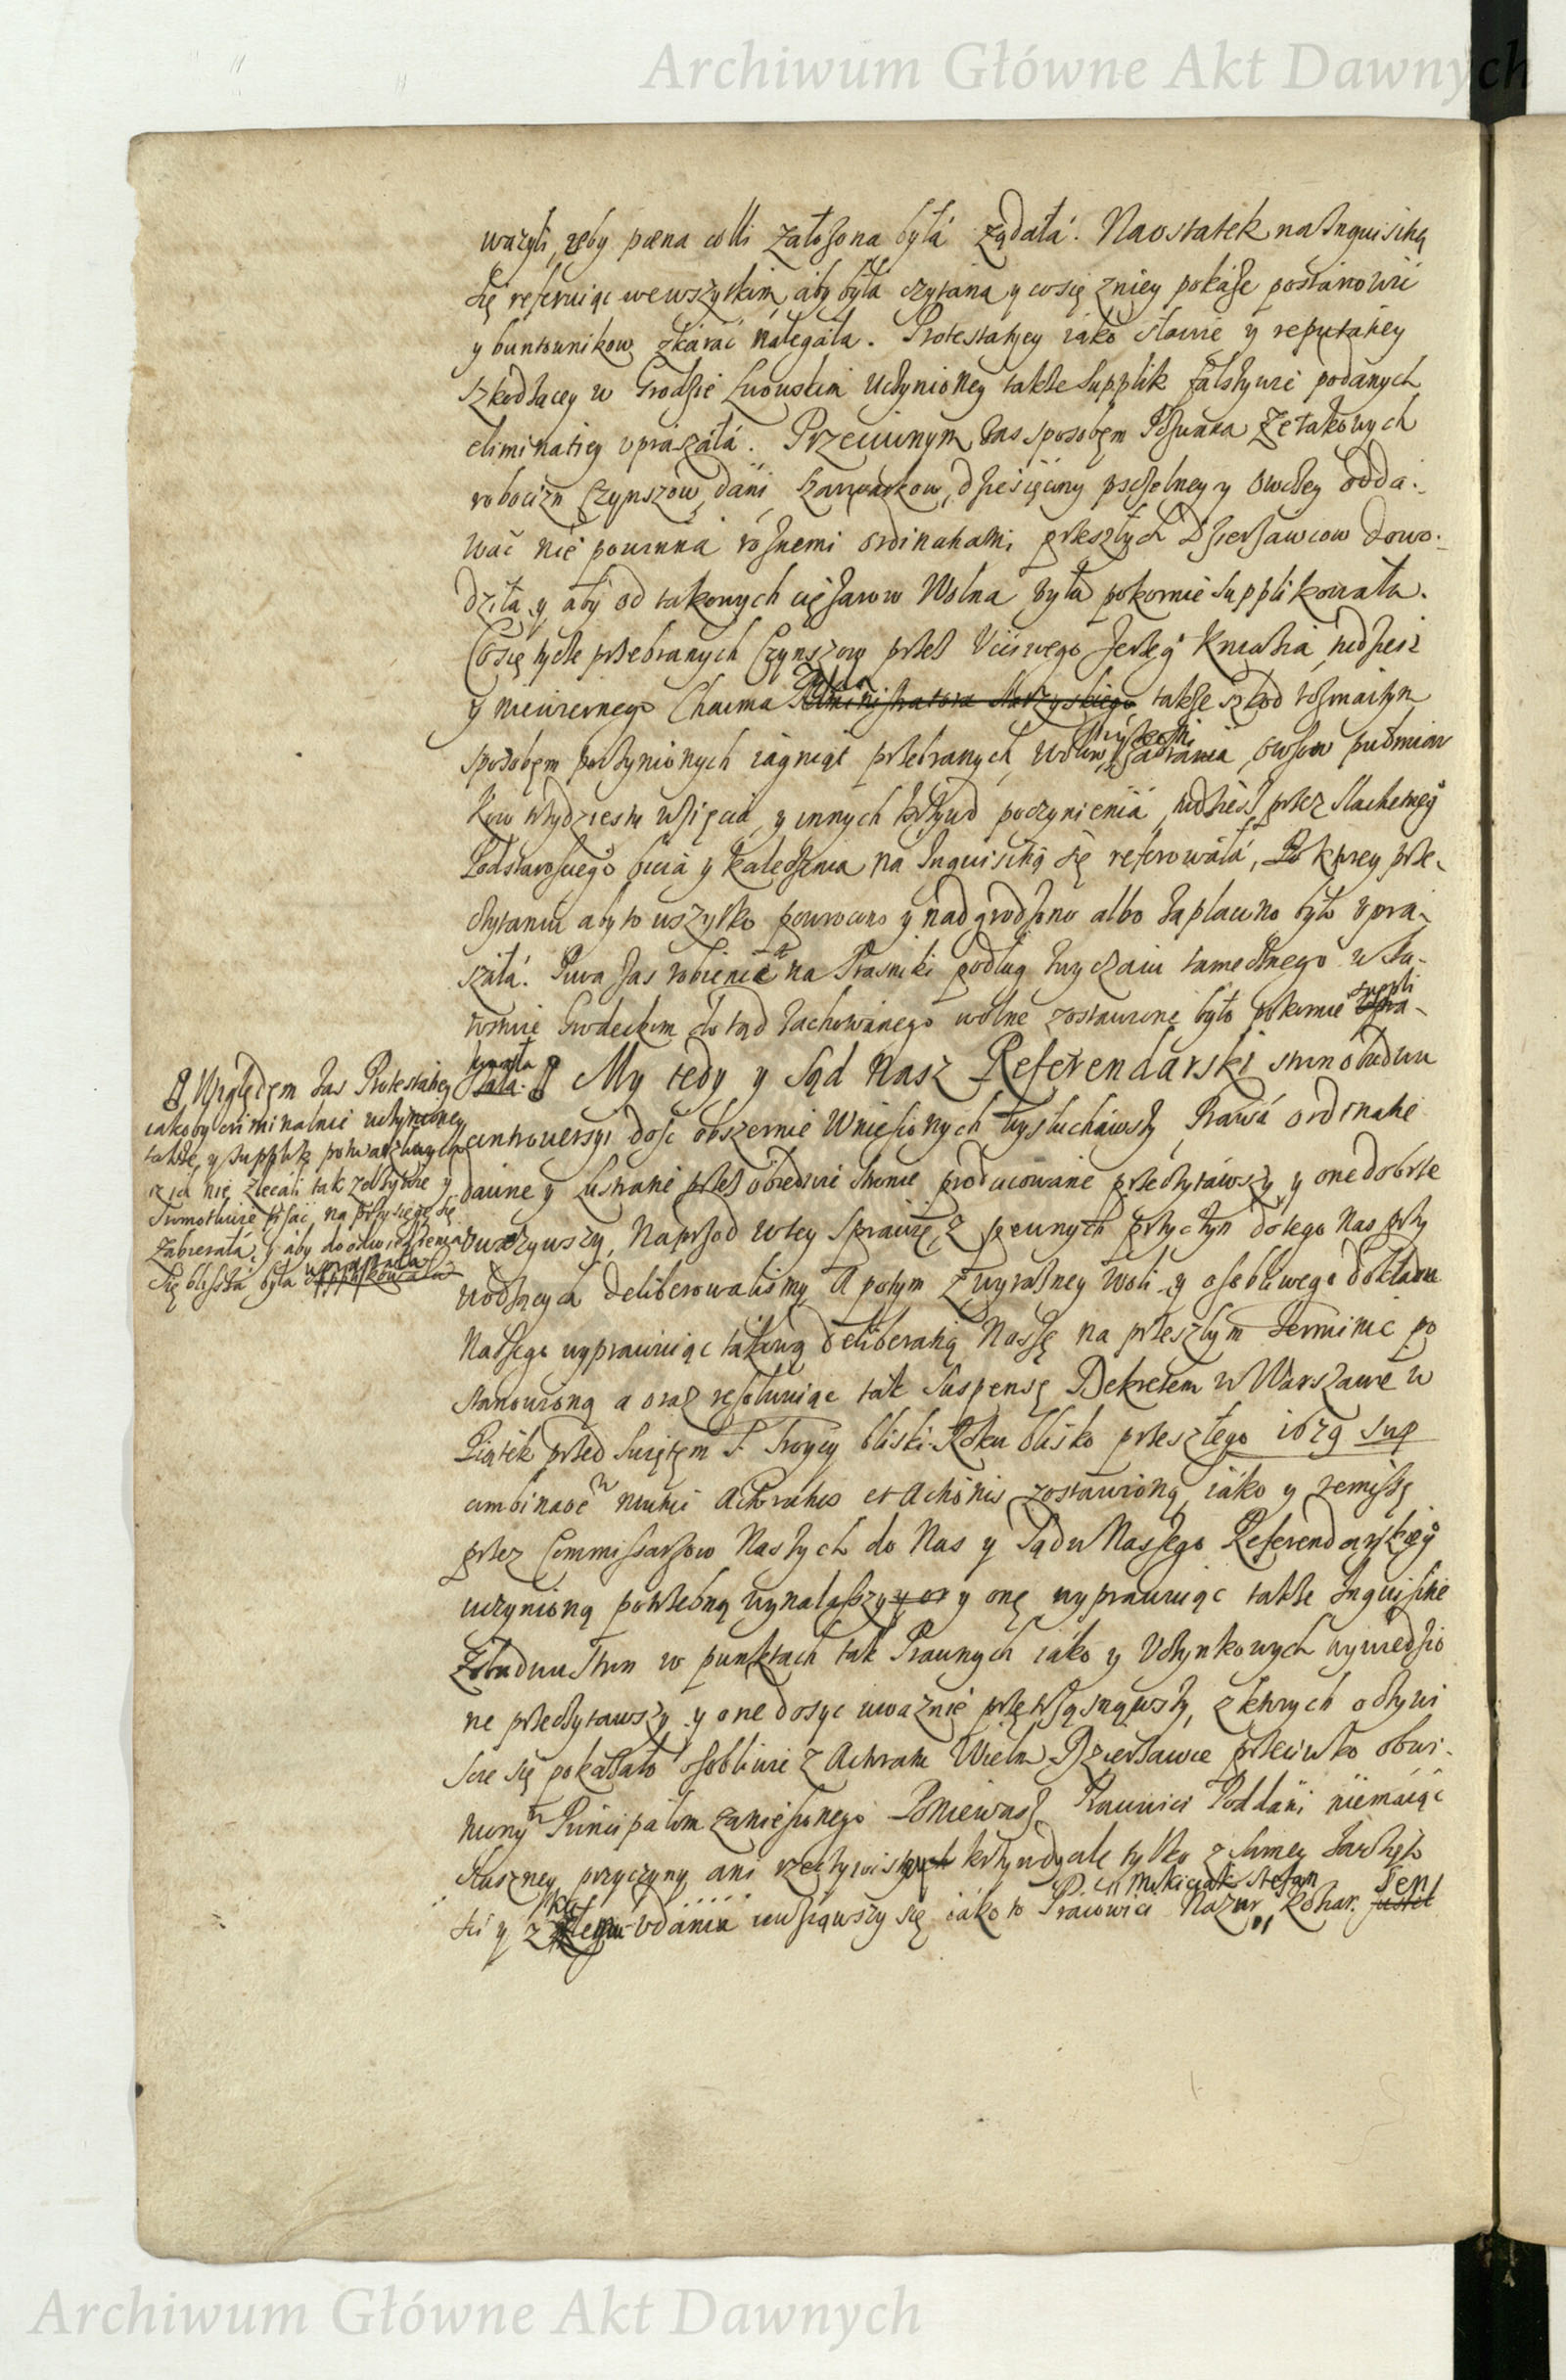 Archiwum Główne Akt Dawnych
ważyli, żeby pæna colli założona byłá żądáłá. Naostatek na Inquisitią
się referuiąc wewszytkim, aby była czytana y cosię zniey pokaże postánowić
y buntownikow zkáráć nálegáła. Protestátyey iáko sławie y reputátiey
szkodzącey w Grodzie Lwowskim uczynioney także Supplik fałszywie podanych
eliminatiey upraszáłá. Przeciwnym zas sposobęm Pozwana Ze takowych
robocizn Czynszow, dáni, szarwarkow, dziesięciny pszczelney y Owczey odda-
wáć nie powinná rożnemi ordinatiami przeszłych Dzierżawcow dowo-
dziła y aby od takowych ciężarow Wolna była pokornie supplikowała.
Cosię tycze przebranych Czynszow przez Ucciwego Jerzeg Kniazia, niedzież
y niewiernego Chaima Żyda Administratora także szkod rozmaitym
sposobęm poczynionych iágniąt przebranych, wołow zabrania, owsow pułmiar
kow trzydziestu wzięcia, y innych krzywd poczynienia, przez Slachetneg
Podstarosciego bicia y kaleczenia na Inquisitią się referowáłá, Po ktorey prze-
czytaniu aby to wszytko powrocono y nadgrodzono albo zapłacono było upra-
száłá. Piwa zas robienie na Prasniki podług zwyczaiu tamecznego w Sta-
rostwie Grodeckim dotąd zachowánego wolne zostawione było pokornie suppli upra-
kowała száłá. My tedy y Sąd Nasz Referendarski stron obudwu
controwersyi dość obszernie Wniesionych wysłucháwszy, Prawá ordinatie
dawne y Lustratie przez obiedwie stronie producowane przeczytáwszy y one dobrze
uważywszy, Naprzod wtey sprawie, z pewnych przyczyn dotego Nas przy
wodzących deliberowalismy A potym z wyraźney Woli y osobliwego dokładu
Naszego wyprawuiąc takową deliberatią Naszę na przeszłym Terminie po
stanowioną a oraz resolwuiąc tak suspensę Dekretem w Warszawie w
Piątek przed Swiętęm S. Troycy blisko przeszłego 1679 sup
cumbinatie w Actoratus et Actionis zostawioną, iáko y remissę
przez Commissarzow Naszych do Nas y Sądu Naszego Referendarskieg
uczynioną potrzebną wynalaszszy y onę wyprawuiąc także Inquisitie
Zobudwu stron w punktach tak Prawnych iáko y Uczynkowych wywiedzio
ne przeczytawszy y one dosyc uważnie przetrząsnąwszy, z ktorych oczywi
scie się pokazáło osobliwie z Actoratu Wielm Dzierżawce przeciwko obwi-
niony Principałom zaniesionego Poniewasz Pracowici Poddáni niemáiąc
słuszney przyczyny ani rzeczywistych krzywd ale tylko z samey zawzięto
sci y z udánia uwziąwszy się iáko to Pracowici Nazar, Kohar.
Względęm zas Protestatiey
iakoby criminalnie uczynioney
także y supplik
iż ich nie zlecáłi tak zelżywie y
Sromotnie pisáć, na przysięgę się
zabieráłá, y aby do odwiedzenia
się bliższa była upraszała supplikowała
Archiwum Główne Akt Dawnych